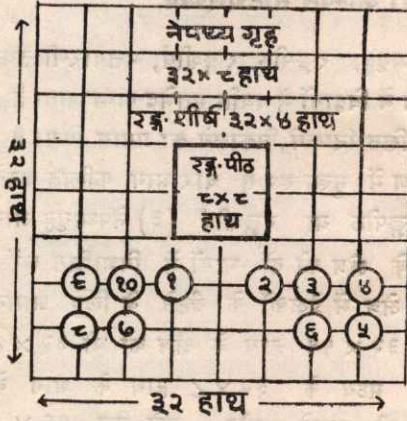 नेपथ्य गृह
३२ × ८ हाथ
रङ्ग-शीर्ष ३२ × ४ हाथ
रङ्ग-पीठ
८ × ८
हाथ
३२ हाथ
६ १० १ २ ३ ४
८ ७ ६ ५
३२ हाथ